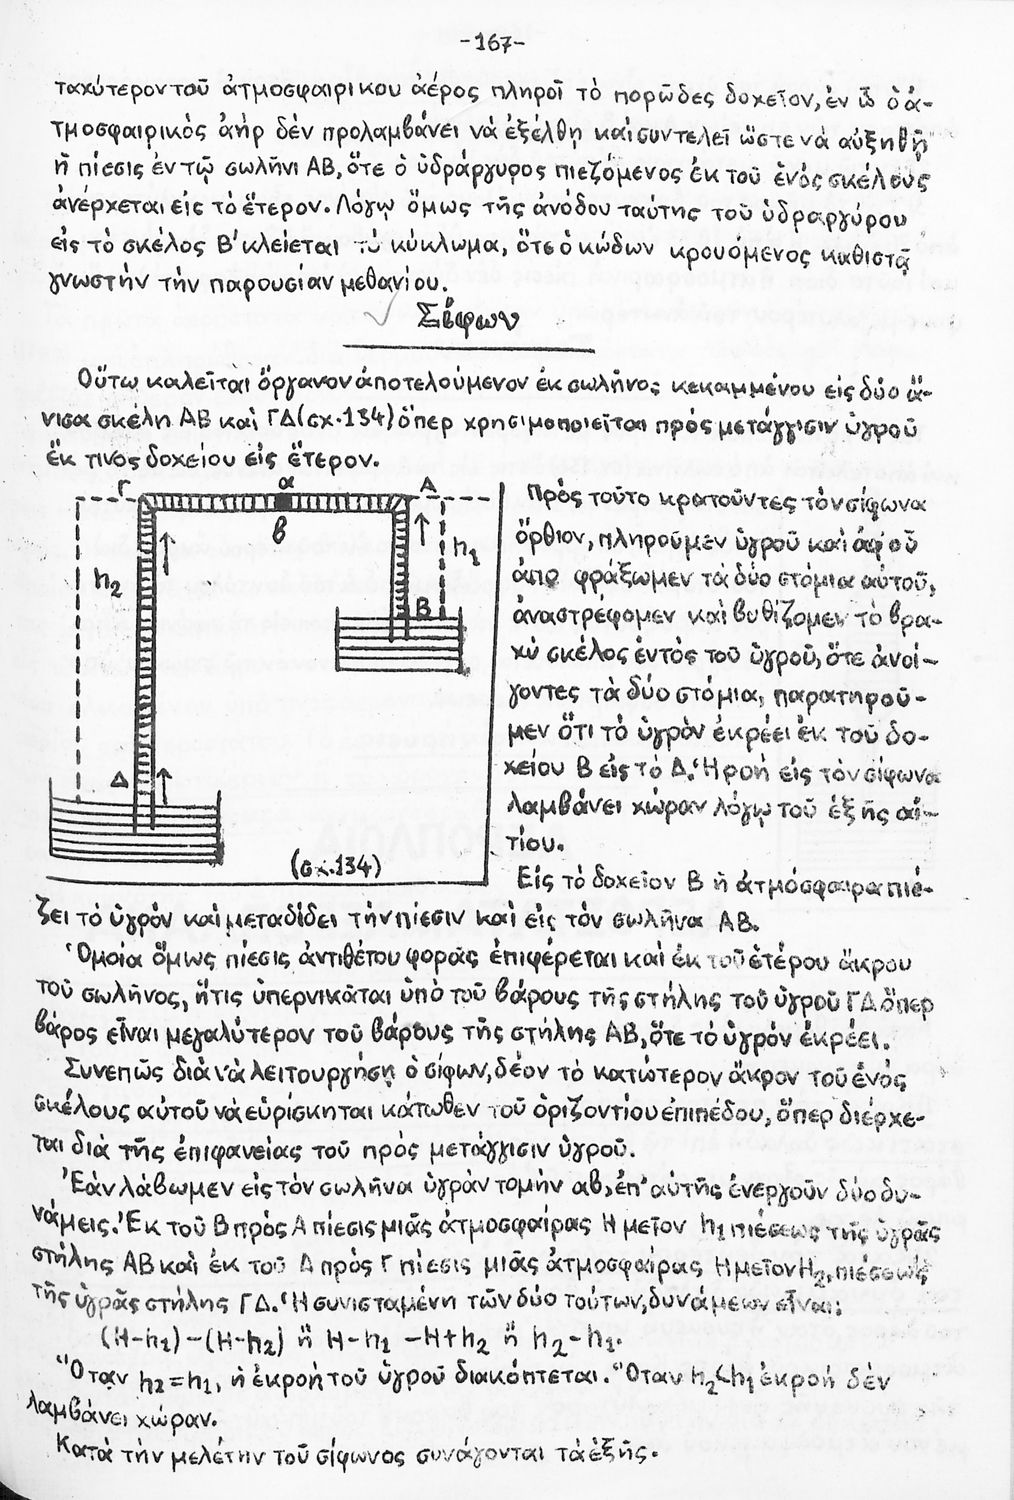 -167-
ταχύτερον τοῦ ἀτμοσφαιρικου ἀέρος πληροῖ τὸ πορῶδες δοχεῖον, ἐν ᾧ ὁ ἀ-
τμοσφαιρικὸς ἀὴρ δὲν προλαμβάνει νὰ ἐξέλθη καὶ συντελεῖ ὥστε νὰ αὐξηθῇ
ἡ πίεσις ἐν τῷ σωλῆνι ΑΒ, ὅτε ὁ ὑδράργυρος πιεζόμενος ἐκ τοῦ ἑνὸς σκέλους
ἀνέρχεται εἰς τὸ ἕτερον. Λόγῳ ὅμως τῆς ἀνόδου ταύτης τοῦ ὑδραργύρου
εἰς τὸ σκέλος Β' κλείεται τὸ κύκλωμα, ὅτε ὁ κώδων κρουόμενος καθιστᾷ
γνωστὴν τὴν παρουσίαν μεθανίου.
Σίφων
Οὕτω καλεῖται ὄργανον ἀποτελούμενον ἐκ σωλῆνος κεκαμμένου εἰς δύο ἄ-
νισα σκέλη ΑΒ καὶ ΓΔ (σχ. 134) ὅπερ χρησιμοποιεῖται πρὸς μετάγγισιν ὑγροῦ
ἔκ τινος δοχείου εἰς ἕτερον.
Γ α Α
β
h2 h1
Β
Δ
(σχ. 134)
Πρὸς τοῦτο κρατοῦντες τὸν σίφωνα
ὄρθιον, πληροῦμεν ὑγροῦ καὶ ἀφοῦ
ἀπο φράξωμεν τὰ δύο στόμια αὐτοῦ,
ἀναστρέφομεν καὶ βυθίζομεν τὸ βρα-
χὺ σκέλος ἐντὸς τοῦ ὑγροῦ, ὅτε ἀνοί-
γοντες τὰ δύο στόμια, παρατηροῦ-
μεν ὅτι τὸ ὑγρὸν ἐκρέει ἐκ τοῦ δο-
χείου Β εἰς τὸ Δ. Ἡ ροὴ εἰς τὸν σίφωνα
λαμβάνει χώραν λόγῳ τοῦ ἑξῆς αἰ-
τίου.
Εἰς τὸ δοχεῖον Β ἡ ἀτμόσφαιρα πιέ-
ζει τὸ ὑγρὸν καὶ μεταδίδει τὴν πίεσιν καὶ εἰς τὸν σωλῆνα ΑΒ.
Ὁμοία ὅμως πίεσις ἀντιθέτου φορᾶς ἐπιφέρεται καὶ ἐκ τοῦ ἑτέρου ἄκρου
τοῦ σωλῆνος, ἥτις ὑπερνικᾶται ὑπὸ τοῦ βάρους τῆς στήλης τοῦ ὑγροῦ ΓΔ ὅπερ
βάρος εἶναι μεγαλύτερον τοῦ βάρους τῆς στήλης ΑΒ, ὅτε τὸ ὑγρὸν ἐκρέει.
Συνεπῶς διὰ νὰ λειτουργήσῃ ὁ σίφων, δέον τὸ κατώτερον ἄκρον τοῦ ἑνὸς
σκέλους αὐτοῦ νὰ εὑρίσκηται κάτωθεν τοῦ ὁριζοντίου ἐπιπέδου, ὅπερ διέρχε-
ται διὰ τῆς ἐπιφανείας τοῦ πρὸς μετάγγισιν ὑγροῦ.
Ἐὰν λάβωμεν εἰς τὸν σωλῆνα ὑγρὰν τομὴν αβ, ἐπ' αὐτῆς ἐνεργοῦν δύο δυ-
νάμεις. Ἐκ τοῦ Β πρὸς Α πίεσις μιᾶς ἀτμοσφαίρας Η μεῖον h1 πιέσεως τῆς ὑγρᾶς
στήλης ΑΒ καὶ ἐκ τοῦ Δ πρὸς Γ πίεσις μιᾶς ἀτμοσφαίρας Η μεῖον Η2, πιέσεως
τῆς ὑγρᾶς στήλης ΓΔ. Ἡ συνισταμένη τῶν δύο τούτων, δυνάμεων εἶναι:
(Η-h1)-(Η-h2) ἢ Η-h1 -Η+h2 ἢ h2-h1.
Ὅταν h2=h1, ἡ ἐκροὴ τοῦ ὑγροῦ διακόπτεται. Ὅταν h2<h1 ἐκροὴ δὲν
λαμβάνει χώραν.
Κατὰ τὴν μελέτην τοῦ σίφωνος συνάγονται τὰ ἑξῆς.